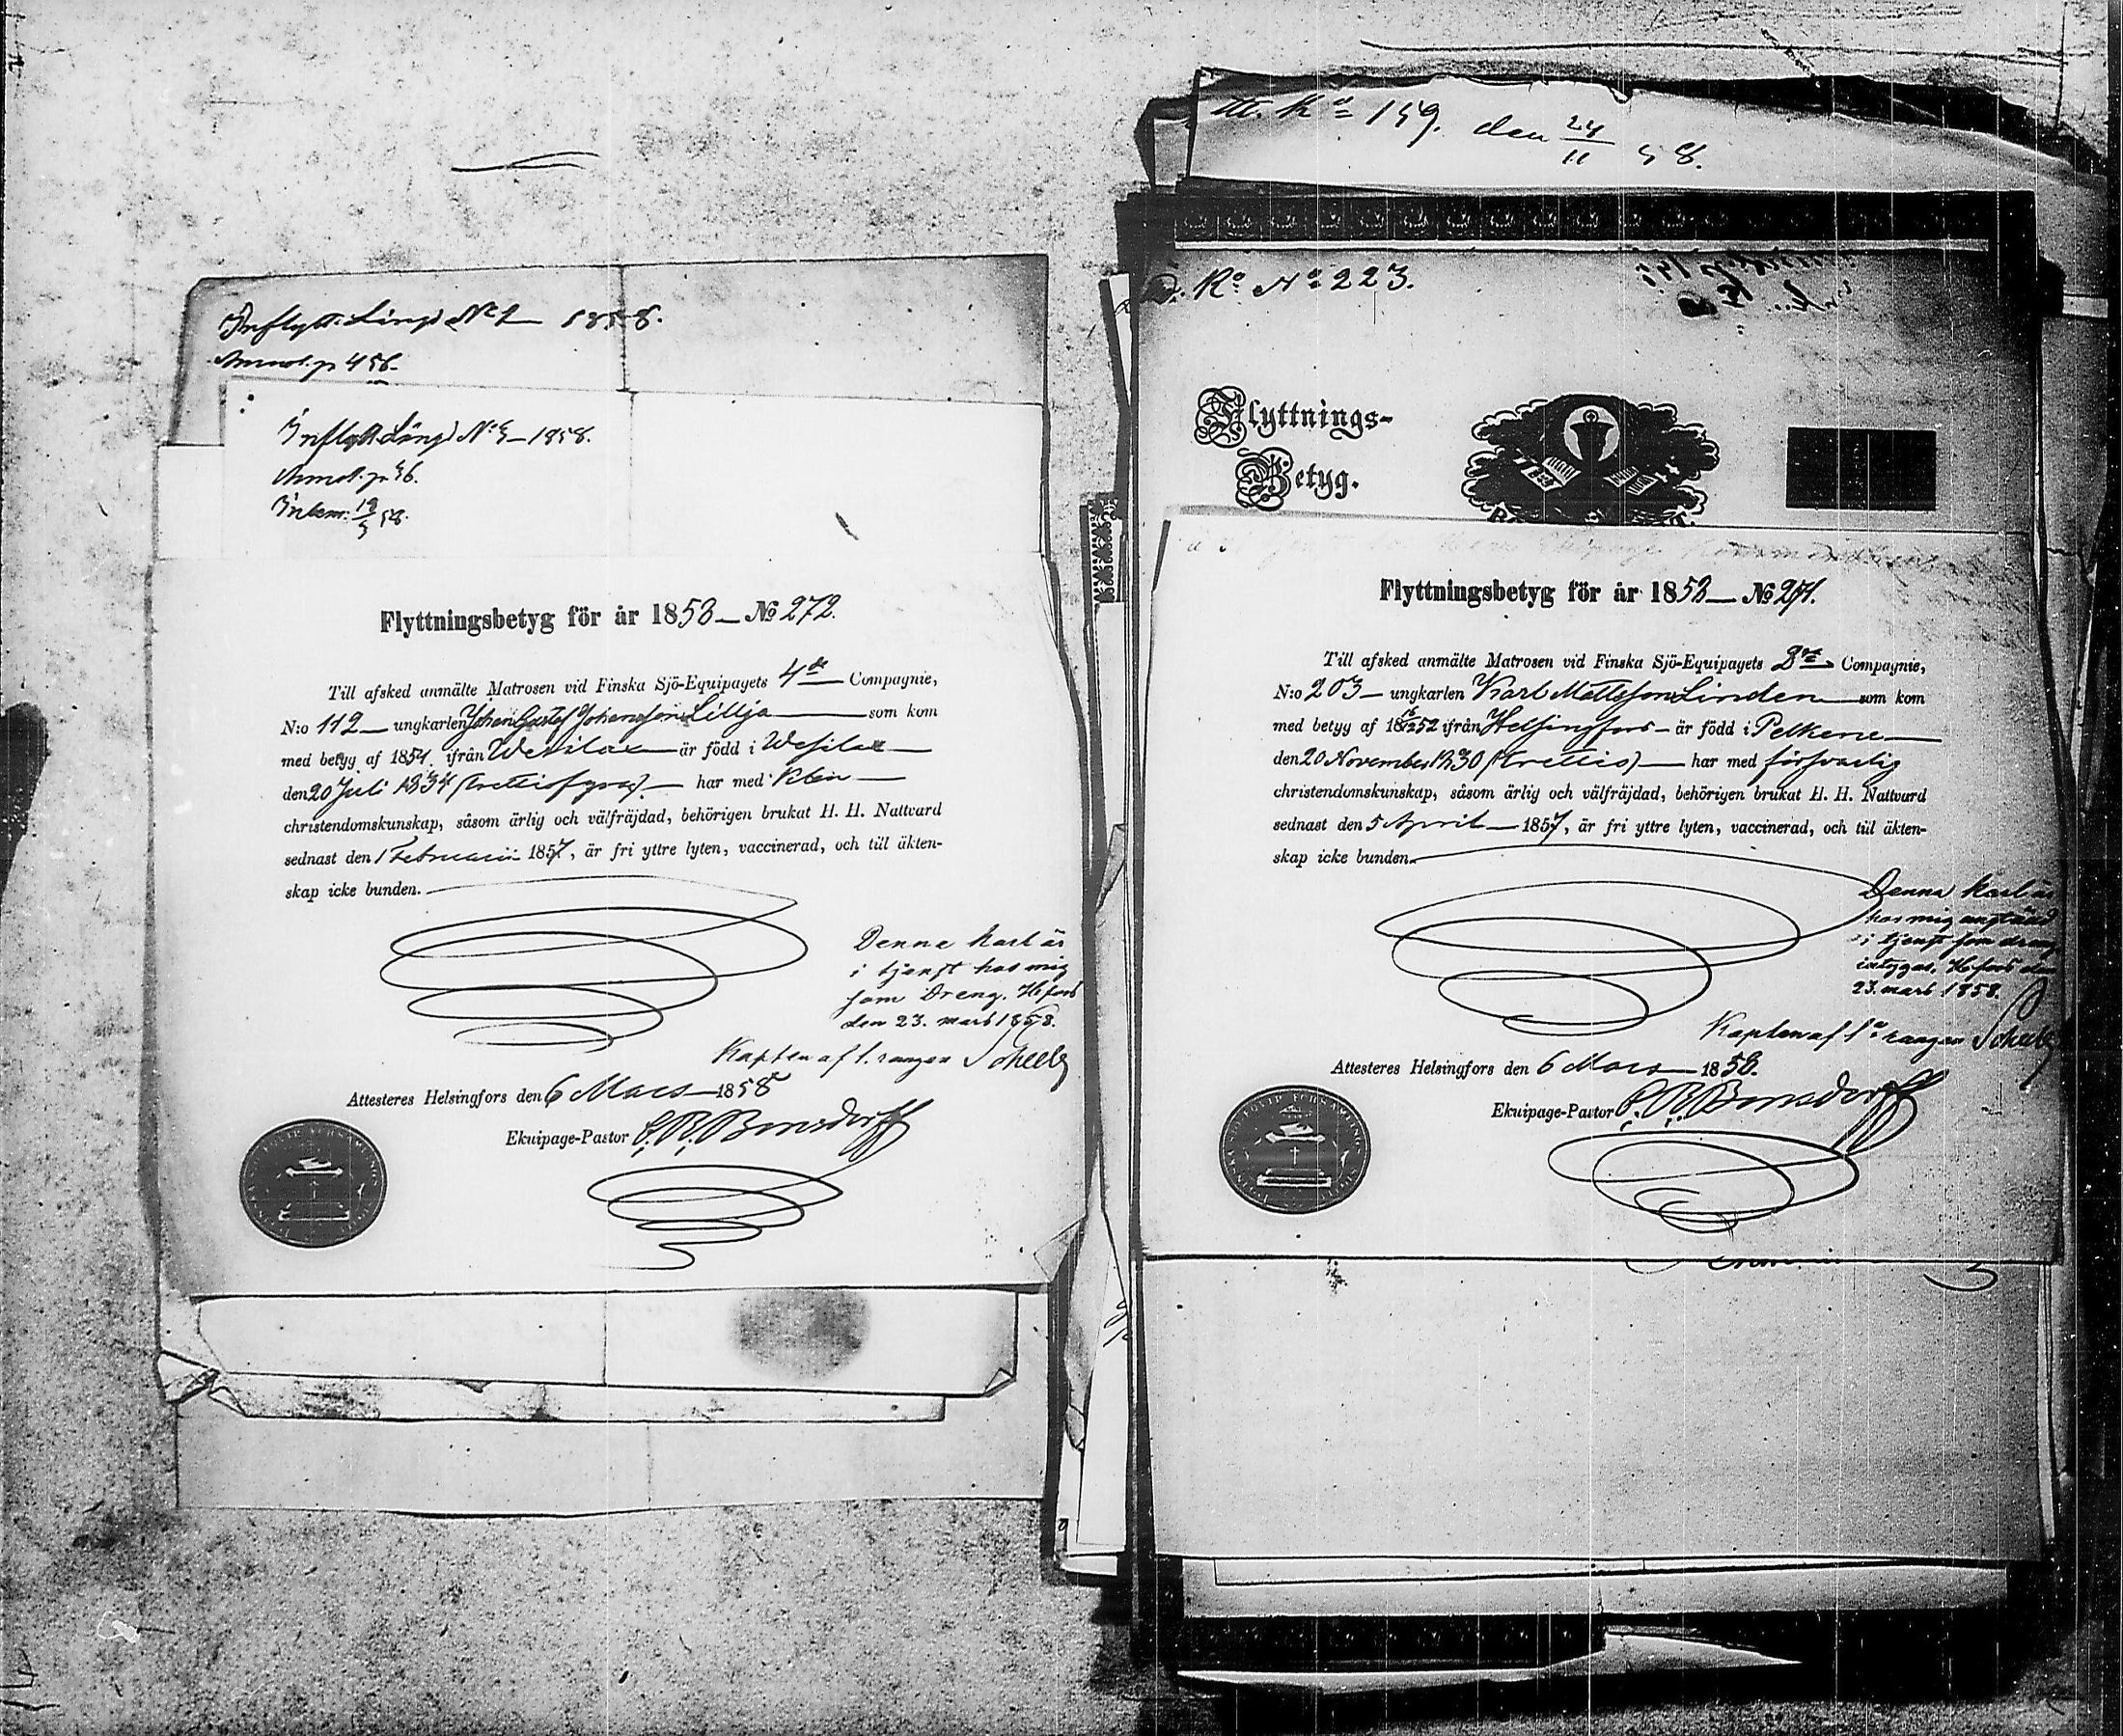 Inflytt. Längd No 2 1858.
Annot. p 456.
Inflytt Längd No 5 - 1858.
Annot. p 56.
Inkom. 19/5 58.
Flyttningsbetyg för år 1858 — No 272.
Till afsked anmälte Matrosen vid Finska Sjö-Equipagets 4de Compagnie,
N:o 112 — ungkarlen Johan Gustaf Johansson Lillja — som kom
med betyg af 1854. ifrån Wesilax — är född i Wesilax —
den 20 Juli 1834 (trettiofyra) — har med klen —
christendomskunskap, såsom ärlig och välfräjdad, behörigen brukat H. H. Nattvard
sednast den 1 Februarii 1857, är fri yttre lyten, vaccinerad, och till äkten-
skap icke bunden.
Denna karl är
i tjenst hos mig
som Dreng. H:fors
den 23. mars 1858.
Kapten af 1. rangen Scheele
Attesteres Helsingfors den 6 Mars — 1858
Ekuipage-Pastor C. R. Bonsdorff
No 159. den 24/11 58.
No 223.
Flyttnings-
Betyg.
Flyttningsbetyg för år 1858 — No 271.
Till afsked anmälte Matrosen vid Finska Sjö-Equipagets Compagnie,
N:o 203 — ungkarlen Karl Mattsson Linden — som kom
med betyg af 18 52 ifrån Helsingfors — är född i Pelkene —
den 20 November 1830 (trettio) — har med försvarlig
christendomskunskap, såsom ärlig och välfräjdad, behörigen brukat H. H. Nattvard
sednast den 5 April — 1857, är fri yttre lyten, vaccinerad, och till äkten-
skap icke bunden.
Denna karl är
hos mig anstäld
i tjenst som dreng
intygas. H:fors den
23. mars 1858.
Kapten af 1a rangen Scheele
Attesteres Helsingfors den 6 Mars — 1858.
Ekuipage-Pastor C. R. Bonsdorff